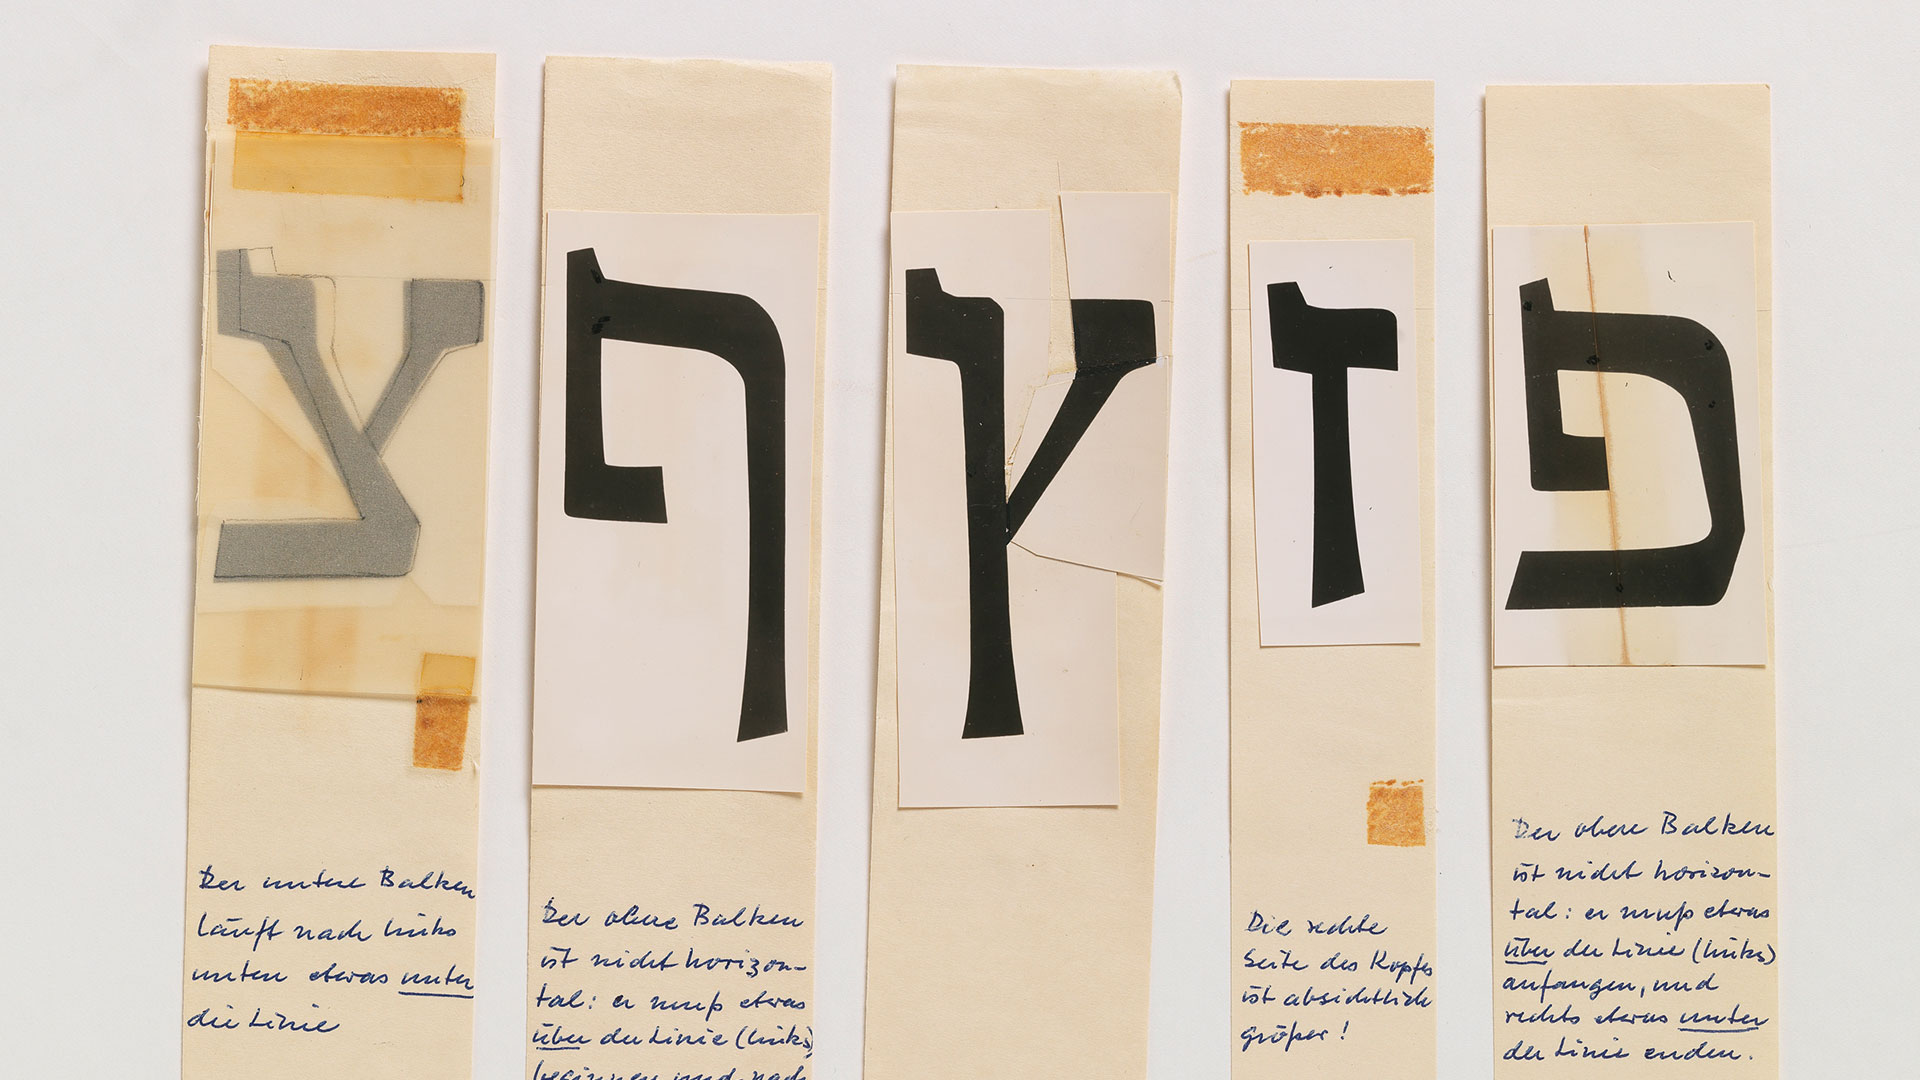 ע
Der untere Balken
läuft nach links
unten etwas unter
die Linie
ף
Der obere Balken
ist nicht horizon-
tal: er muß etwas
über der Linie (links)
beginnen und nach
ץ
ז
Die rechte
Seite des Kopfes
ist absichtlich
größer!
פ
Der obere Balken
ist nicht horizon-
tal: er muß etwas
über der Linie (links)
anfangen, und
rechts etwas unter
der Linie enden.